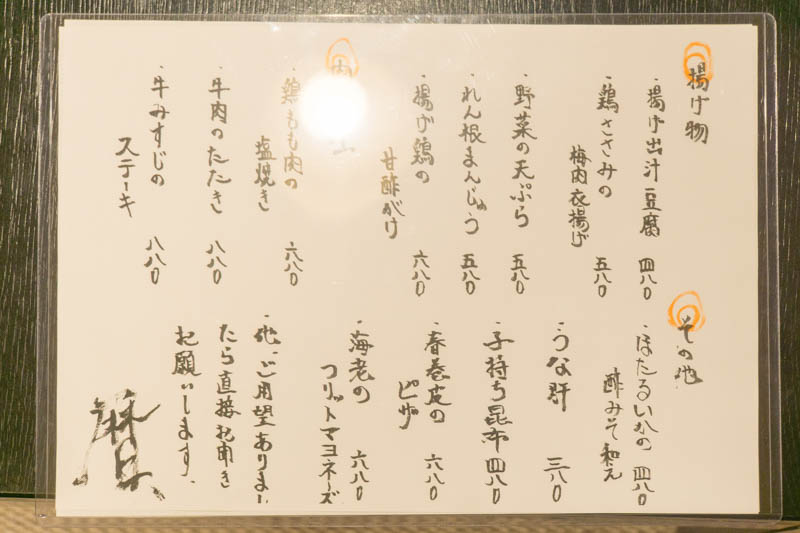 揚げ物
・揚げ出汁豆腐 四八〇
・鶏ささみの
梅肉衣揚げ 五八〇
・野菜の天ぷら 五八〇
・れん根まんじゅう 五八〇
・揚げ鶏の
甘酢がけ 六八〇
肉
・鶏もも肉の
塩焼き 六八〇
・牛肉のたたき 八八〇
・牛みすじの
ステーキ 八八〇
その他
・ほたるいかの
酢みそ和え 四八〇
・うな肝 三八〇
・子持ち昆布 四八〇
・春巻皮の
ピザ 六八〇
・海老の
フリットマヨネーズ 六八〇
・他、ご用望ありまし
たら直接お聞き
お願いします。